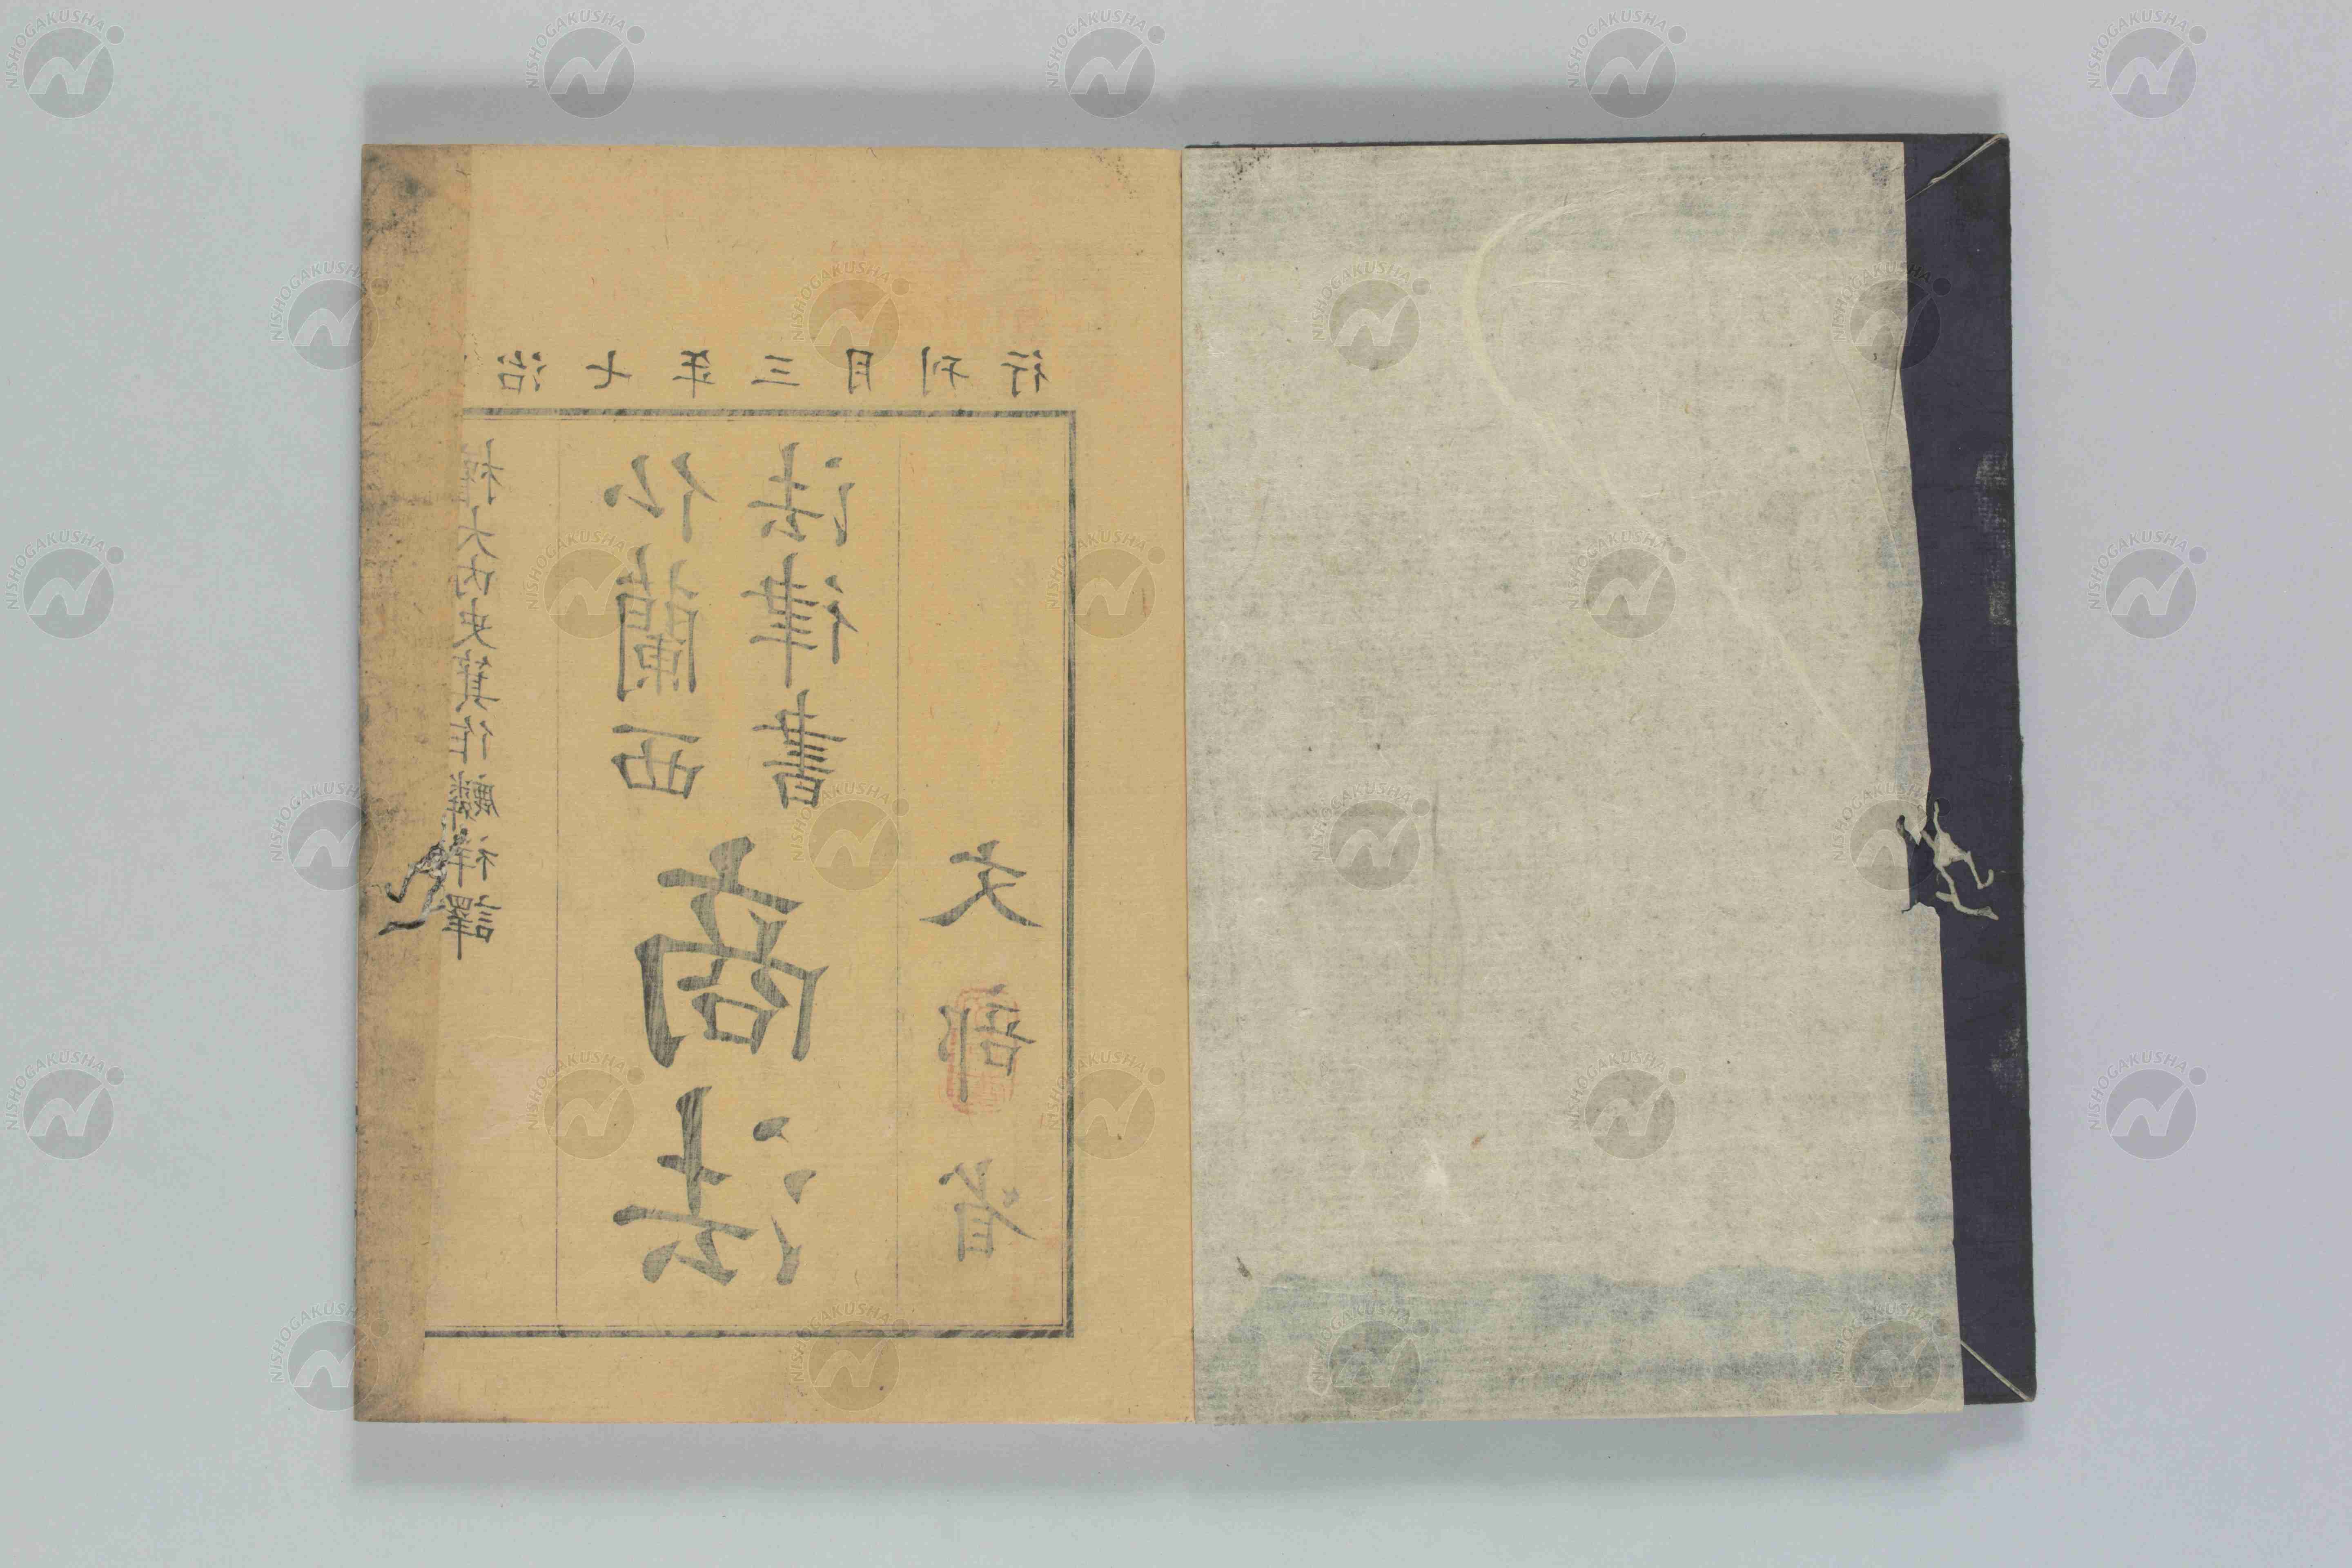 治七年三月刊行
權大内史箕作麟祥譯
仏蘭西
法律書
商法
文部省
NISHOGAKUSHA